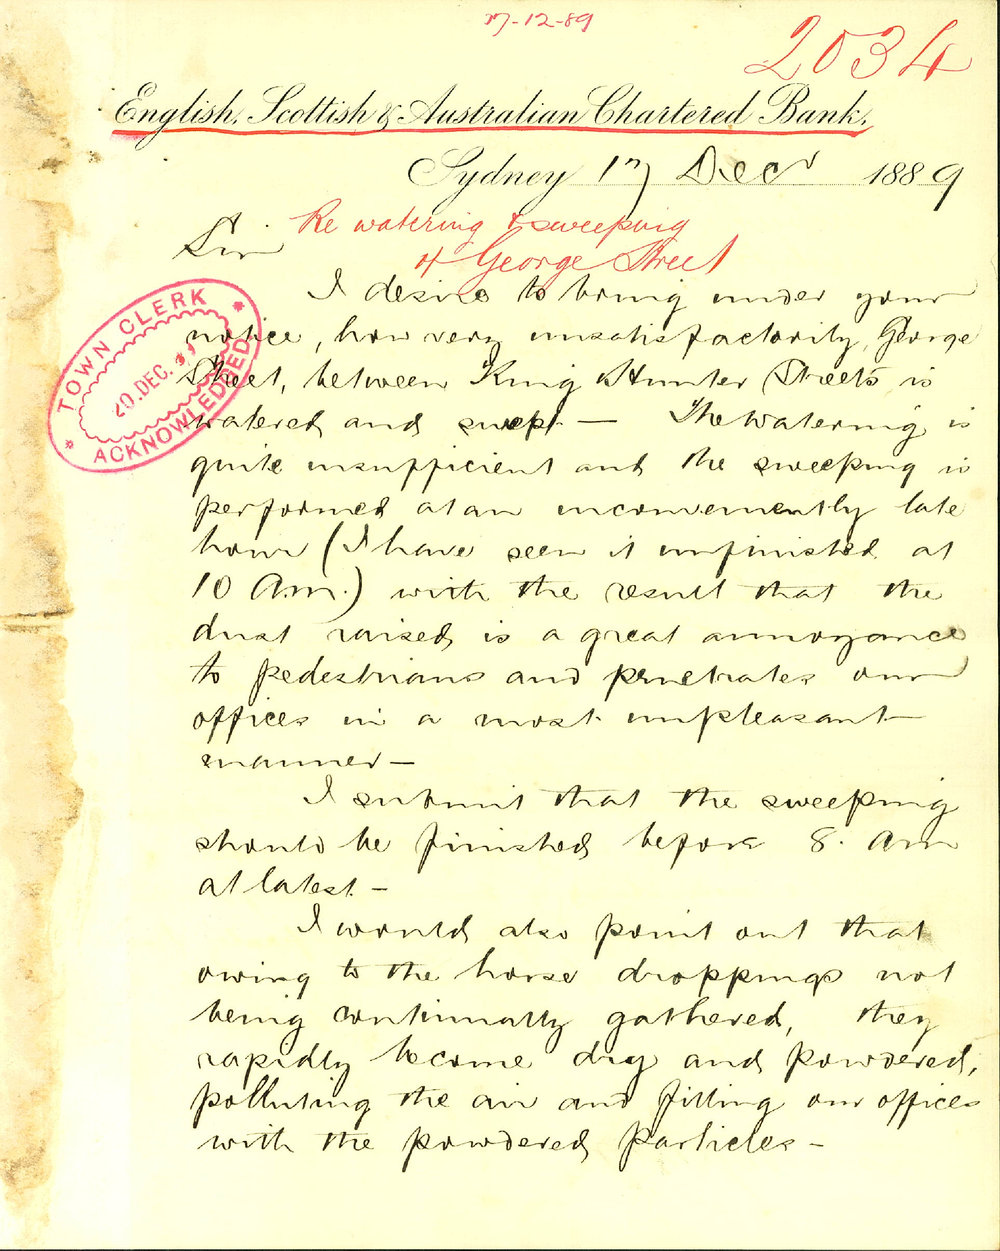 17-12-89
2034
English, Scottish & Australian Chartered Bank.
Sydney 17 Decr 1889
Re watering & sweeping
of George Street
Sir
I desire to bring under your
notice, how very unsatisfactorily, George
Street, between King & Hunter Streets is
watered and swept — The watering is
quite insufficient and the sweeping is
performed at an inconveniently late
hour (I have seen it unfinished at
10 A.m.) with the result that the
dust raised is a great annoyance
to pedestrians and penetrates our
offices in a most unpleasant
manner —
I submit that the sweeping
should be finished before 8. am
at latest —
I would also point out that
owing to the horse droppings not
being continually gathered, they
rapidly become dry and powdered,
polluting the air and filling our offices
with the powdered particles —
TOWN CLERK
20 DEC. 89
ACKNOWLEDGED